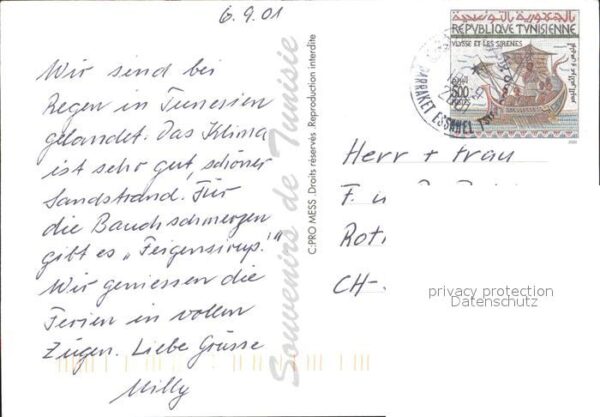 6.9.01
Wir sind bei
Regen in Tunesien
gelandet. Das Klima
ist sehr gut, schöner
Sandstrand. Für
die Bauchschmerzen
gibt es „Feigensirup."
Wir geniessen die
Ferien in vollen
Zügen. Liebe Grüsse
Milly
Souvenirs de Tunisie
C:PRO MESS .Droits réservés .Reproduction interdite
الجمهورية التونسية
REPVBLIQVE TVNISIENNE
VLYSSE ET LES SIRENES
500
BARRAKET ESSAHEL
Herr + Frau
F.
Rot
CH-
privacy protection
Datenschutz